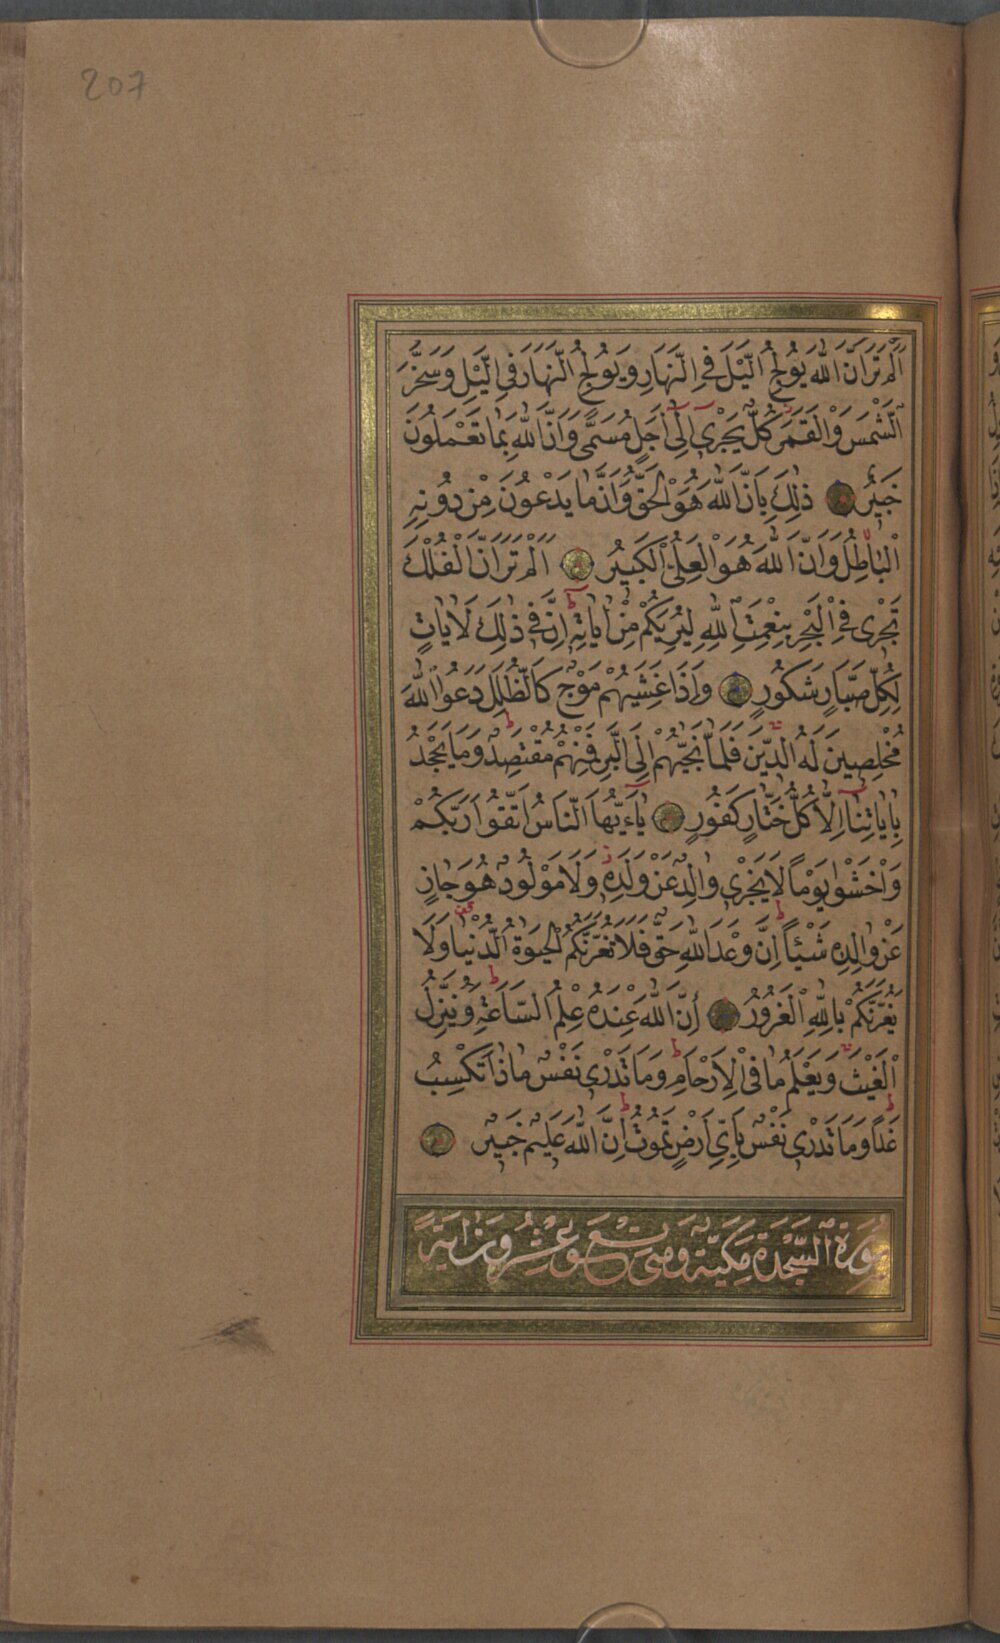 207
اَلَمْ تَرَ اَنَّ اللّٰهَ يُولِجُ الَّيْلَ فِي النَّهَارِ وَيُولِجُ النَّهَارَ فِي الَّيْلِ وَسَخَّرَ
الشَّمْسَ وَالْقَمَرَ كُلٌّ يَجْرِي اِلٰٓى اَجَلٍ مُسَمًّى وَاَنَّ اللّٰهَ بِمَا تَعْمَلُونَ
خَبِيرٌ ذٰلِكَ بِاَنَّ اللّٰهَ هُوَ الْحَقُّ وَاَنَّ مَا يَدْعُونَ مِنْ دُونِهِ
الْبَاطِلُ وَاَنَّ اللّٰهَ هُوَ الْعَلِيُّ الْكَبِيرُ اَلَمْ تَرَ اَنَّ الْفُلْكَ
تَجْرِي فِي الْبَحْرِ بِنِعْمَتِ اللّٰهِ لِيُرِيَكُمْ مِنْ اٰيَاتِهِ اِنَّ فِي ذٰلِكَ لَاٰيَاتٍ
لِكُلِّ صَبَّارٍ شَكُورٍ وَاِذَا غَشِيَهُمْ مَوْجٌ كَالظُّلَلِ دَعَوُا اللّٰهَ
مُخْلِصِينَ لَهُ الدِّينَ فَلَمَّا نَجّٰيهُمْ اِلَى الْبَرِّ فَمِنْهُمْ مُقْتَصِدٌ وَمَا يَجْحَدُ
بِاٰيَاتِنَا اِلَّا كُلُّ خَتَّارٍ كَفُورٍ يَاءَيُّهَا النَّاسُ اتَّقُوا رَبَّكُمْ
وَاخْشَوْا يَوْمًا لَا يَجْزِي وَالِدٌ عَنْ وَلَدِهِ وَلَا مَوْلُودٌ هُوَ جَازٍ
عَنْ وَالِدِهِ شَيْئًا اِنَّ وَعْدَ اللّٰهِ حَقٌّ فَلَا تَغُرَّنَّكُمُ الْحَيٰوةُ الدُّنْيَا وَلَا
يَغُرَّنَّكُمْ بِاللّٰهِ الْغَرُورُ اِنَّ اللّٰهَ عِنْدَهُ عِلْمُ السَّاعَةِ وَيُنَزِّلُ
الْغَيْثَ وَيَعْلَمُ مَا فِي الْاَرْحَامِ وَمَا تَدْرِي نَفْسٌ مَاذَا تَكْسِبُ
غَدًا وَمَا تَدْرِي نَفْسٌ بِاَيِّ اَرْضٍ تَمُوتُ اِنَّ اللّٰهَ عَلِيمٌ خَبِيرٌ
سُورَةُ السَّجْدَةِ مَكِّيَّةٌ وَهِيَ تِسْعٌ وَعِشْرُونَ اٰيَةً